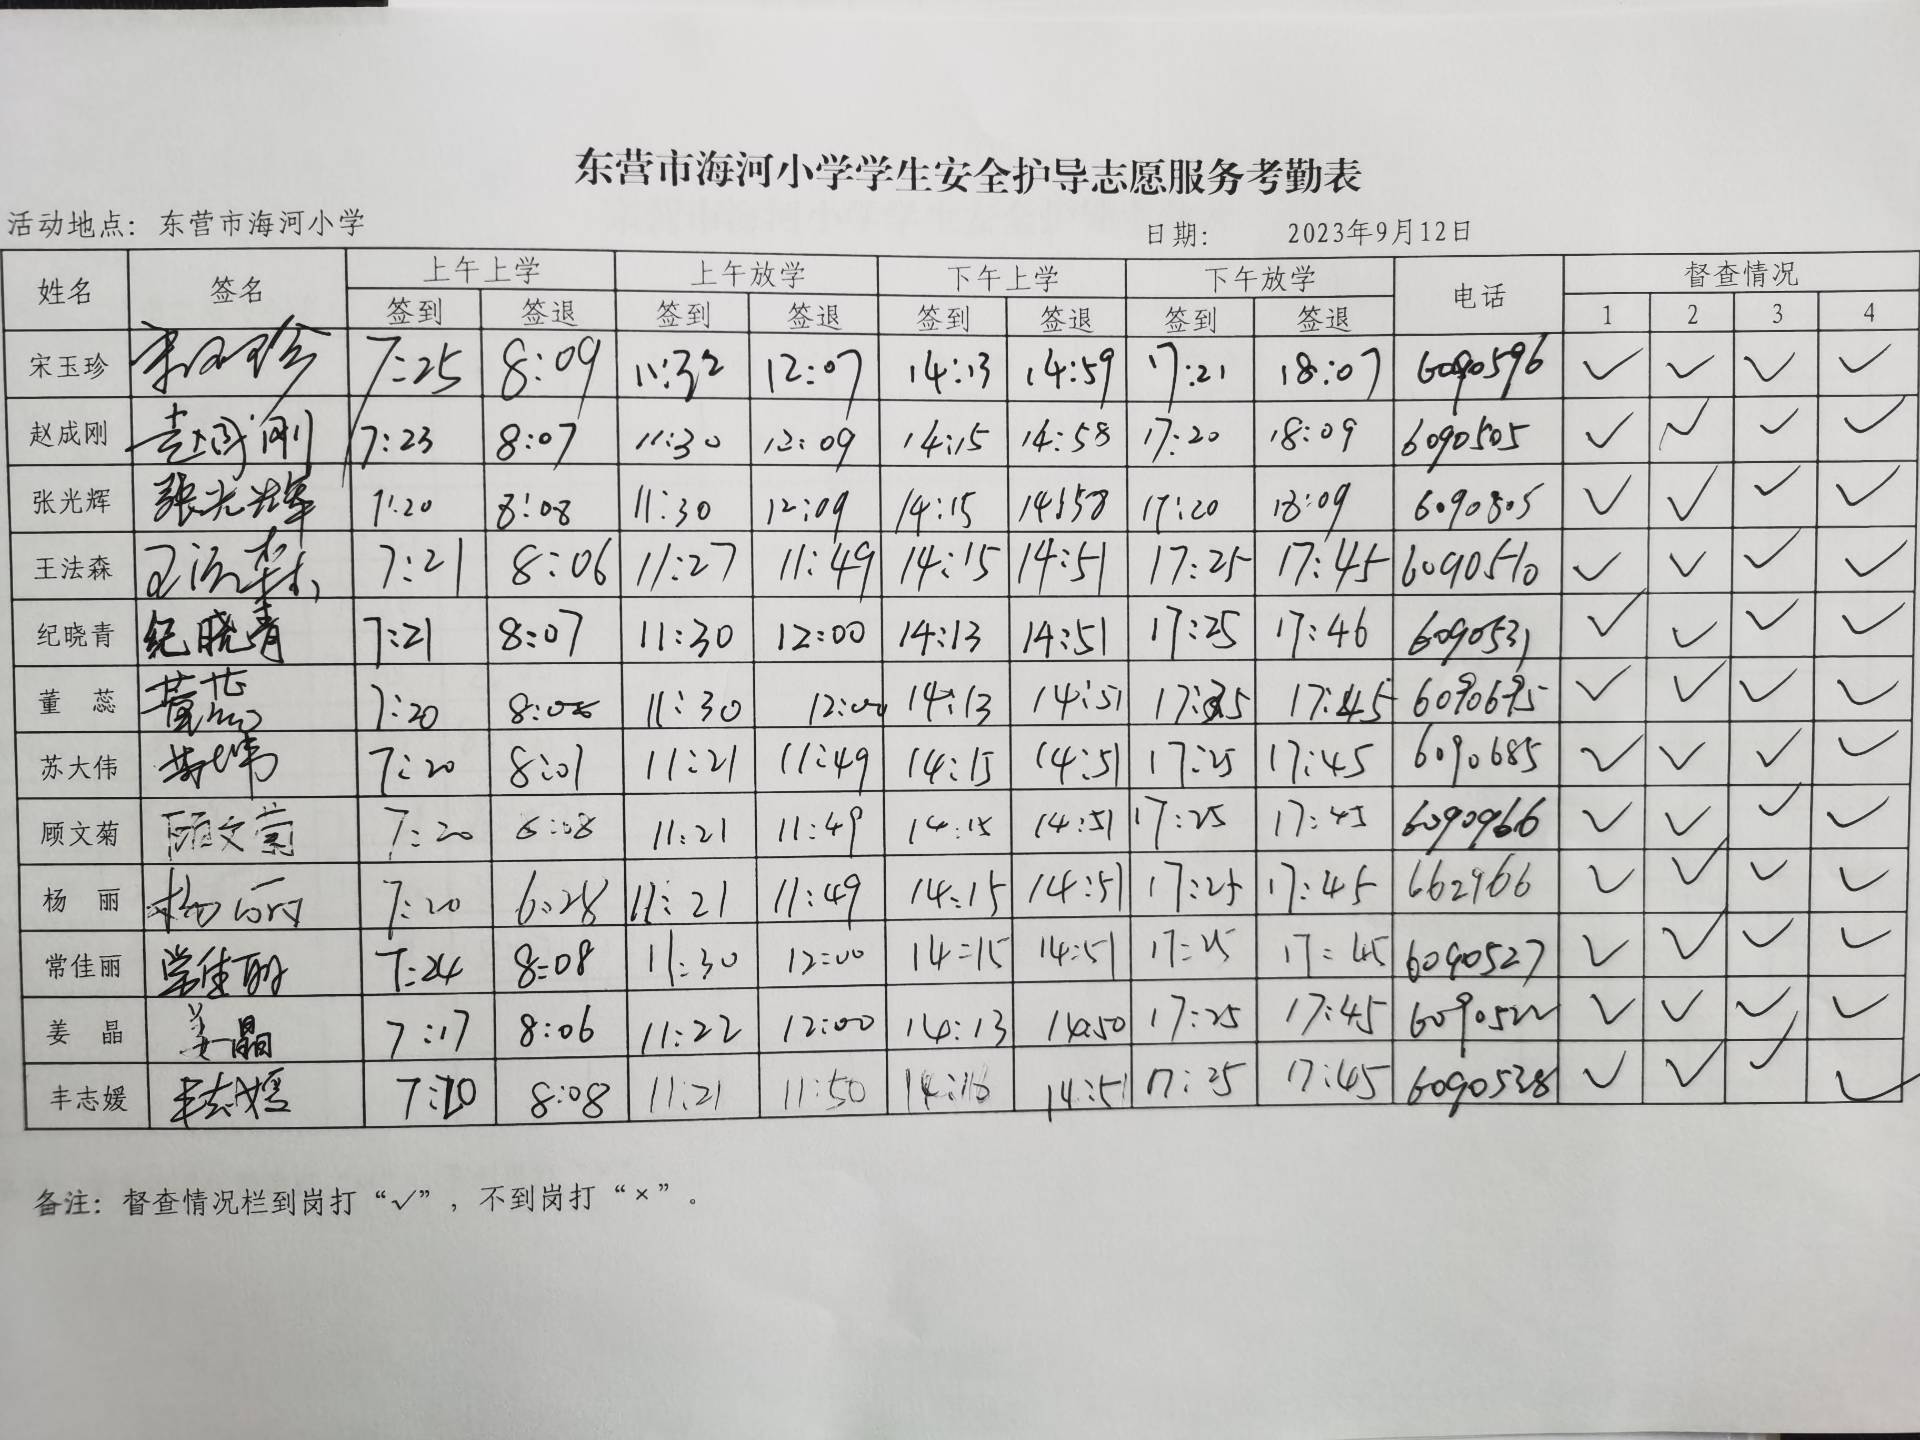 东营市海河小学学生安全护导志愿服务考勤表
活动地点：东营市海河小学 日期： 2023年9月12日
姓名 签名 上午上学 上午放学 下午上学 下午放学 电话 督查情况
签到 签退 签到 签退 签到 签退 签到 签退 1 2 3 4
宋玉珍 宋玉珍 7:25 8:09 11:32 12:07 14:13 14:59 17:21 18:07 6090596 ✓ ✓ ✓ ✓
赵成刚 赵成刚 7:23 8:07 11:30 12:09 14:15 14:58 17:20 18:09 6090505 ✓ ✓ ✓ ✓
张光辉 张光辉 7:20 8:08 11:30 12:09 14:15 14:58 17:20 18:09 6090805 ✓ ✓ ✓ ✓
王法森 王法森 7:21 8:06 11:27 11:49 14:15 14:51 17:25 17:45 6090510 ✓ ✓ ✓ ✓
纪晓青 纪晓青 7:21 8:07 11:30 12:00 14:13 14:51 17:25 17:46 6090531 ✓ ✓ ✓ ✓
董 蕊 董蕊 7:20 11:30 12:00 14:13 14:51 17:45 6090695 ✓ ✓ ✓ ✓
苏大伟 苏大伟 7:20 8:01 11:21 11:49 14:15 14:51 17:25 17:45 6090685 ✓ ✓ ✓ ✓
顾文菊 顾文菊 7:20 11:21 11:49 14:15 14:51 17:25 17:45 6090966 ✓ ✓ ✓ ✓
杨 丽 杨丽 7:20 6:28 11:21 11:49 14:15 14:51 17:25 17:45 662966 ✓ ✓ ✓ ✓
常佳丽 常佳丽 7:24 8:08 11:30 12:00 14:15 14:51 17:25 17:45 6090527 ✓ ✓ ✓ ✓
姜 晶 姜晶 7:17 8:06 11:22 12:00 14:13 14:50 17:25 17:45 6090522 ✓ ✓ ✓ ✓
丰志媛 丰志媛 8:08 11:21 11:50 14:51 17:25 17:45 6090528 ✓ ✓ ✓ ✓
备注：督查情况栏到岗打“✓”，不到岗打“×”。